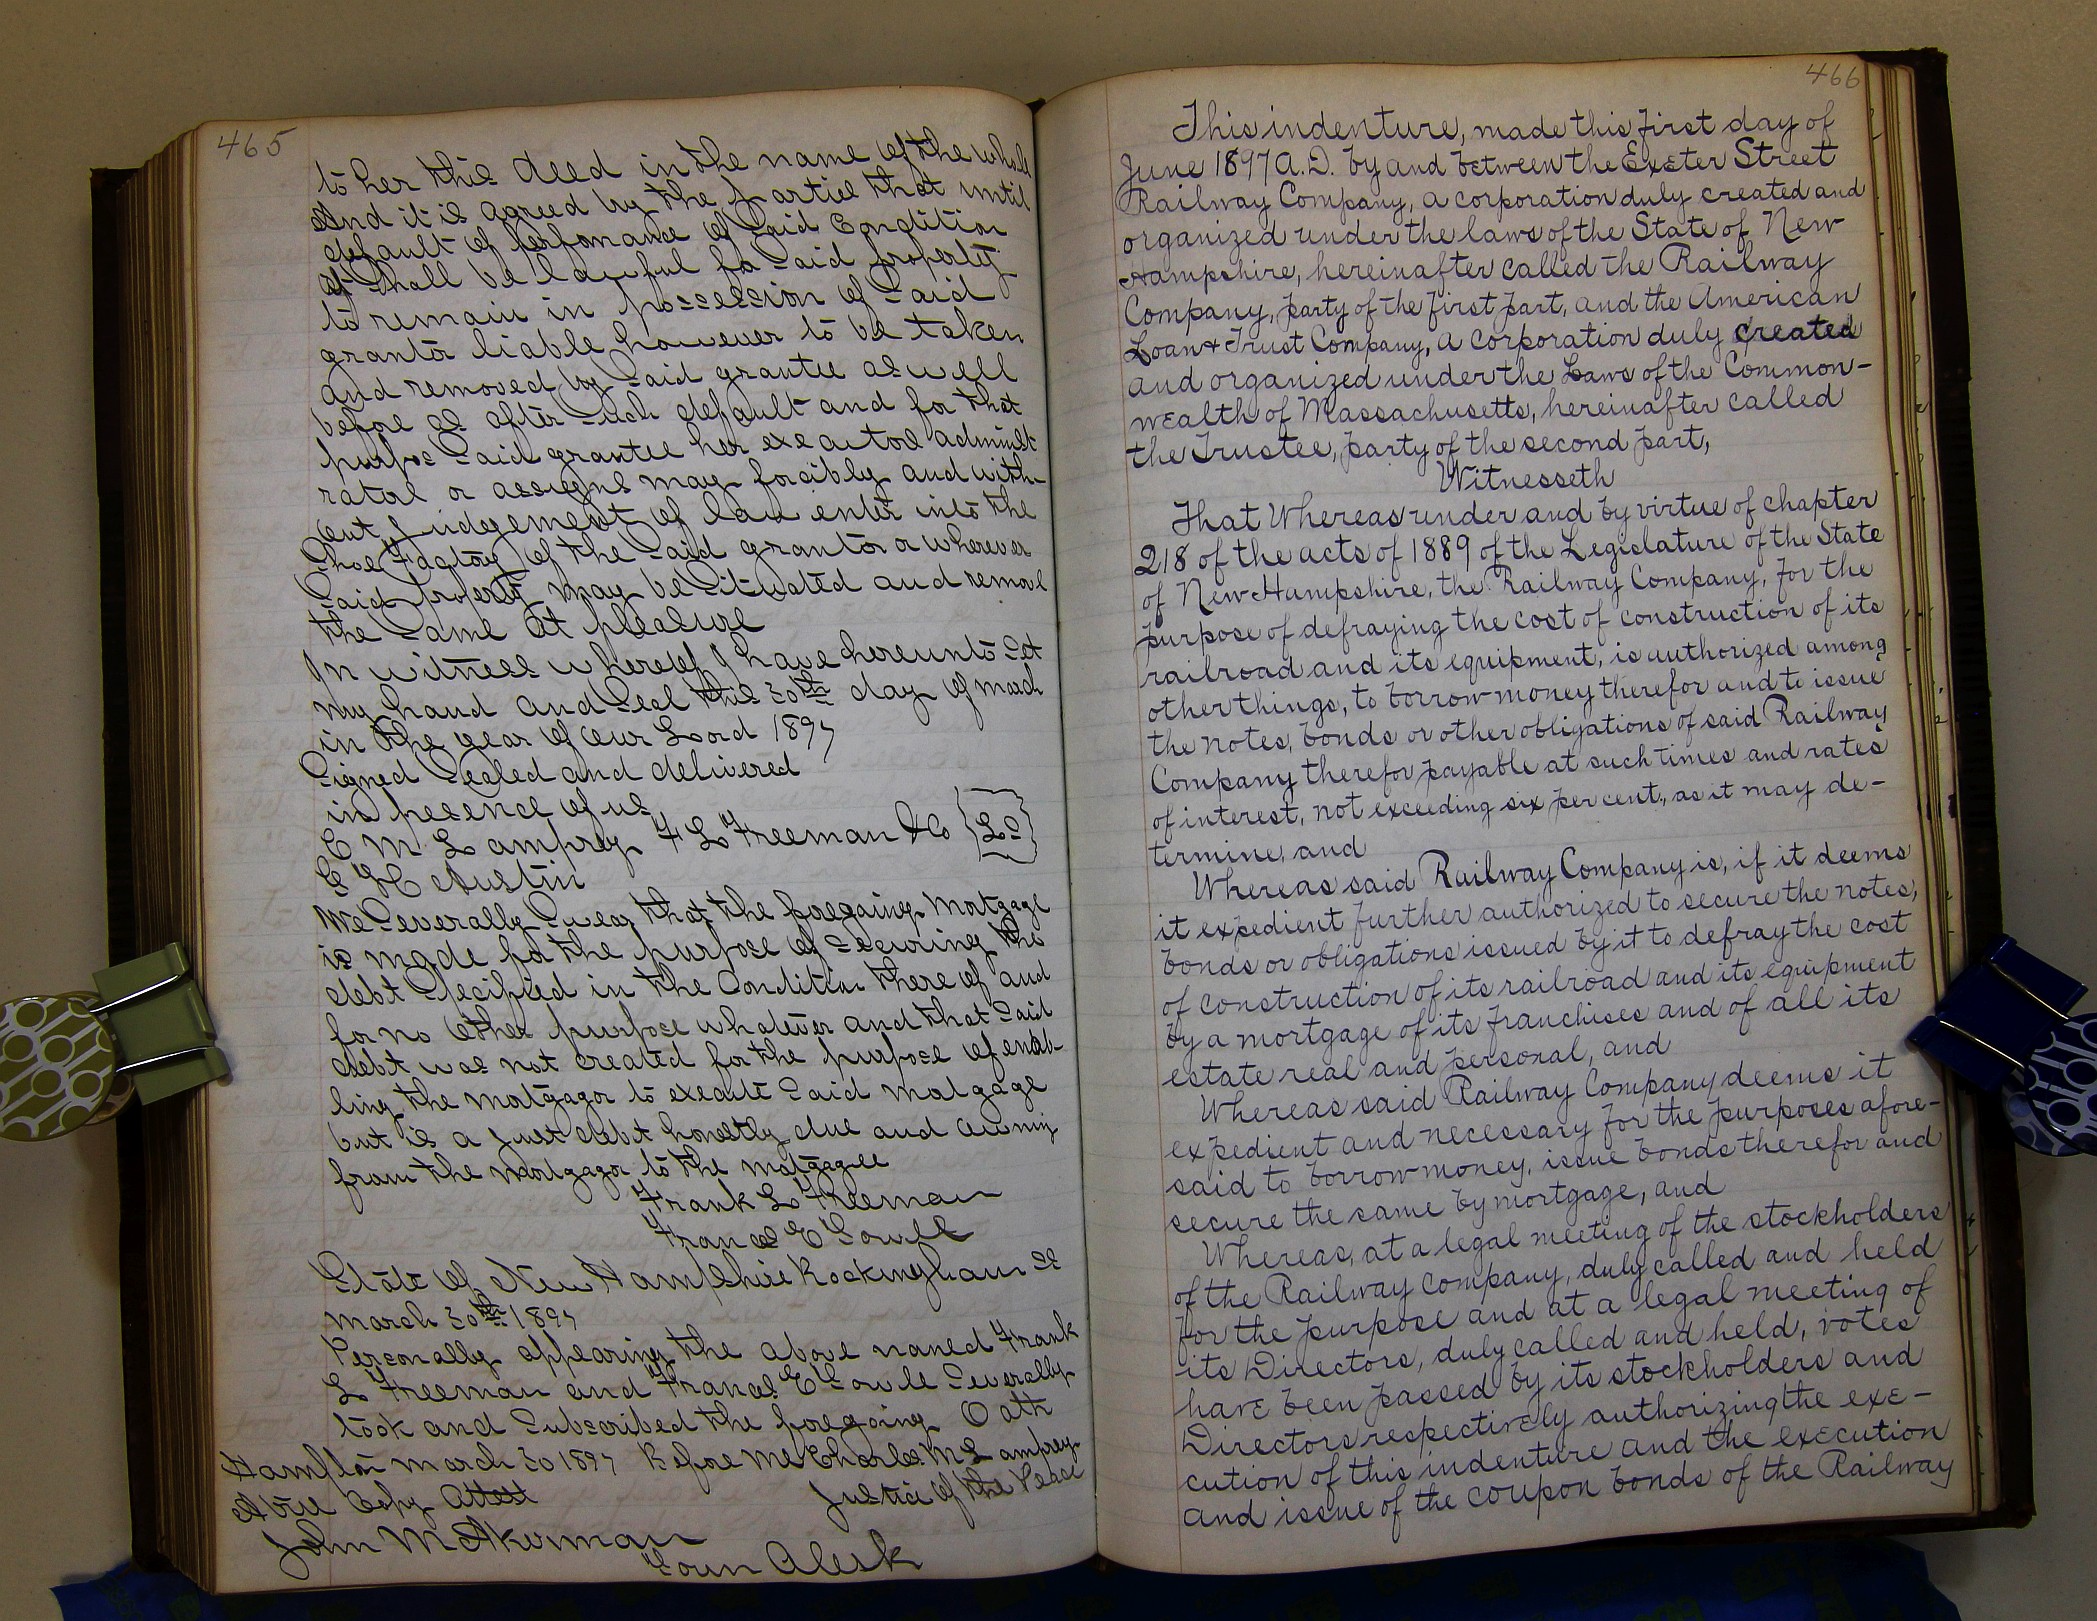 465
to her this deed in the name of the whole
And it is agreed by the parties that until
default of perfomance of said Condition
it shall be lawful for said property
to remain in possession of said
grantor liable however to be taken
and removed by said grantee as well
before as after such default and for that
purpose said grantee her executors administ
rators or assigns may forcibly and with-
out judgement of law enter into the
Shoe Factory of the said grantor or wherever
said property may be situated and remove
the same at pleasure
In witness whereof I have hereunto set
my hand and seal this 30th day of march
in the year of our Lord 1897
Signed Sealed and delivered
in presence of us
C M Lamprey F L Freeman & Co LS
Austin
We severally swear that the foregoing mortgage
is made for the purpose of securing the
debt specified in the Condition there of and
for no other purpose whatever and that said
debt was not created for the purpose of enab-
ling the mortgagor to execute said mortgage
but is a just debt honestly due and owing
from the mortgagor to the mortgagee
Frank L Freeman
Frances E Towle
State of New Hampshire Rockingham ss
March 30th 1897
Personally appearing the above named Frank
L Freeman and Frances E Towle severally
took and subscribed the foregoing Oath
Hampton March 30 1897 Before me Charles M Lamprey
A true Copy Attest Justice of the Peace
John M Akerman
Town Clerk
466
This indenture, made this first day of
June 1897 A.D. by and between the Exeter Street
Railway Company, a corporation duly created and
organized under the laws of the State of New
Hampshire, hereinafter called the Railway
Company, party of the first part, and the American
Loan & Trust Company, a corporation duly created
and organized under the Laws of the Common-
wealth of Massachusetts, hereinafter called
the Trustee, party of the second part,
Witnesseth
That Whereas under and by virtue of chapter
218 of the acts of 1889 of the Legislature of the State
of New Hampshire, the Railway Company, for the
purpose of defraying the cost of construction of its
railroad and its equipment, is authorized among
other things, to borrow money therefor and to issue
the notes, bonds or other obligations of said Railway
Company therefor payable at such times and rates
of interest, not exceeding six per cent., as it may de-
termine, and
Whereas said Railway Company is, if it deems
it expedient further authorized to secure the notes,
bonds or obligations issued by it to defray the cost
of construction of its railroad and its equipment
by a mortgage of its franchises and of all its
estate real and personal, and
Whereas said Railway Company deems it
expedient and necessary for the purposes afore-
said to borrow money, issue bonds therefor and
secure the same by mortgage, and
Whereas, at a legal meeting of the stockholders
of the Railway Company, duly called and held
for the purpose and at a legal meeting of
its Directors, duly called and held, votes
have been passed by its stockholders and
Directors respectively authorizing the exe-
cution of this indenture and the execution
and issue of the coupon bonds of the Railway